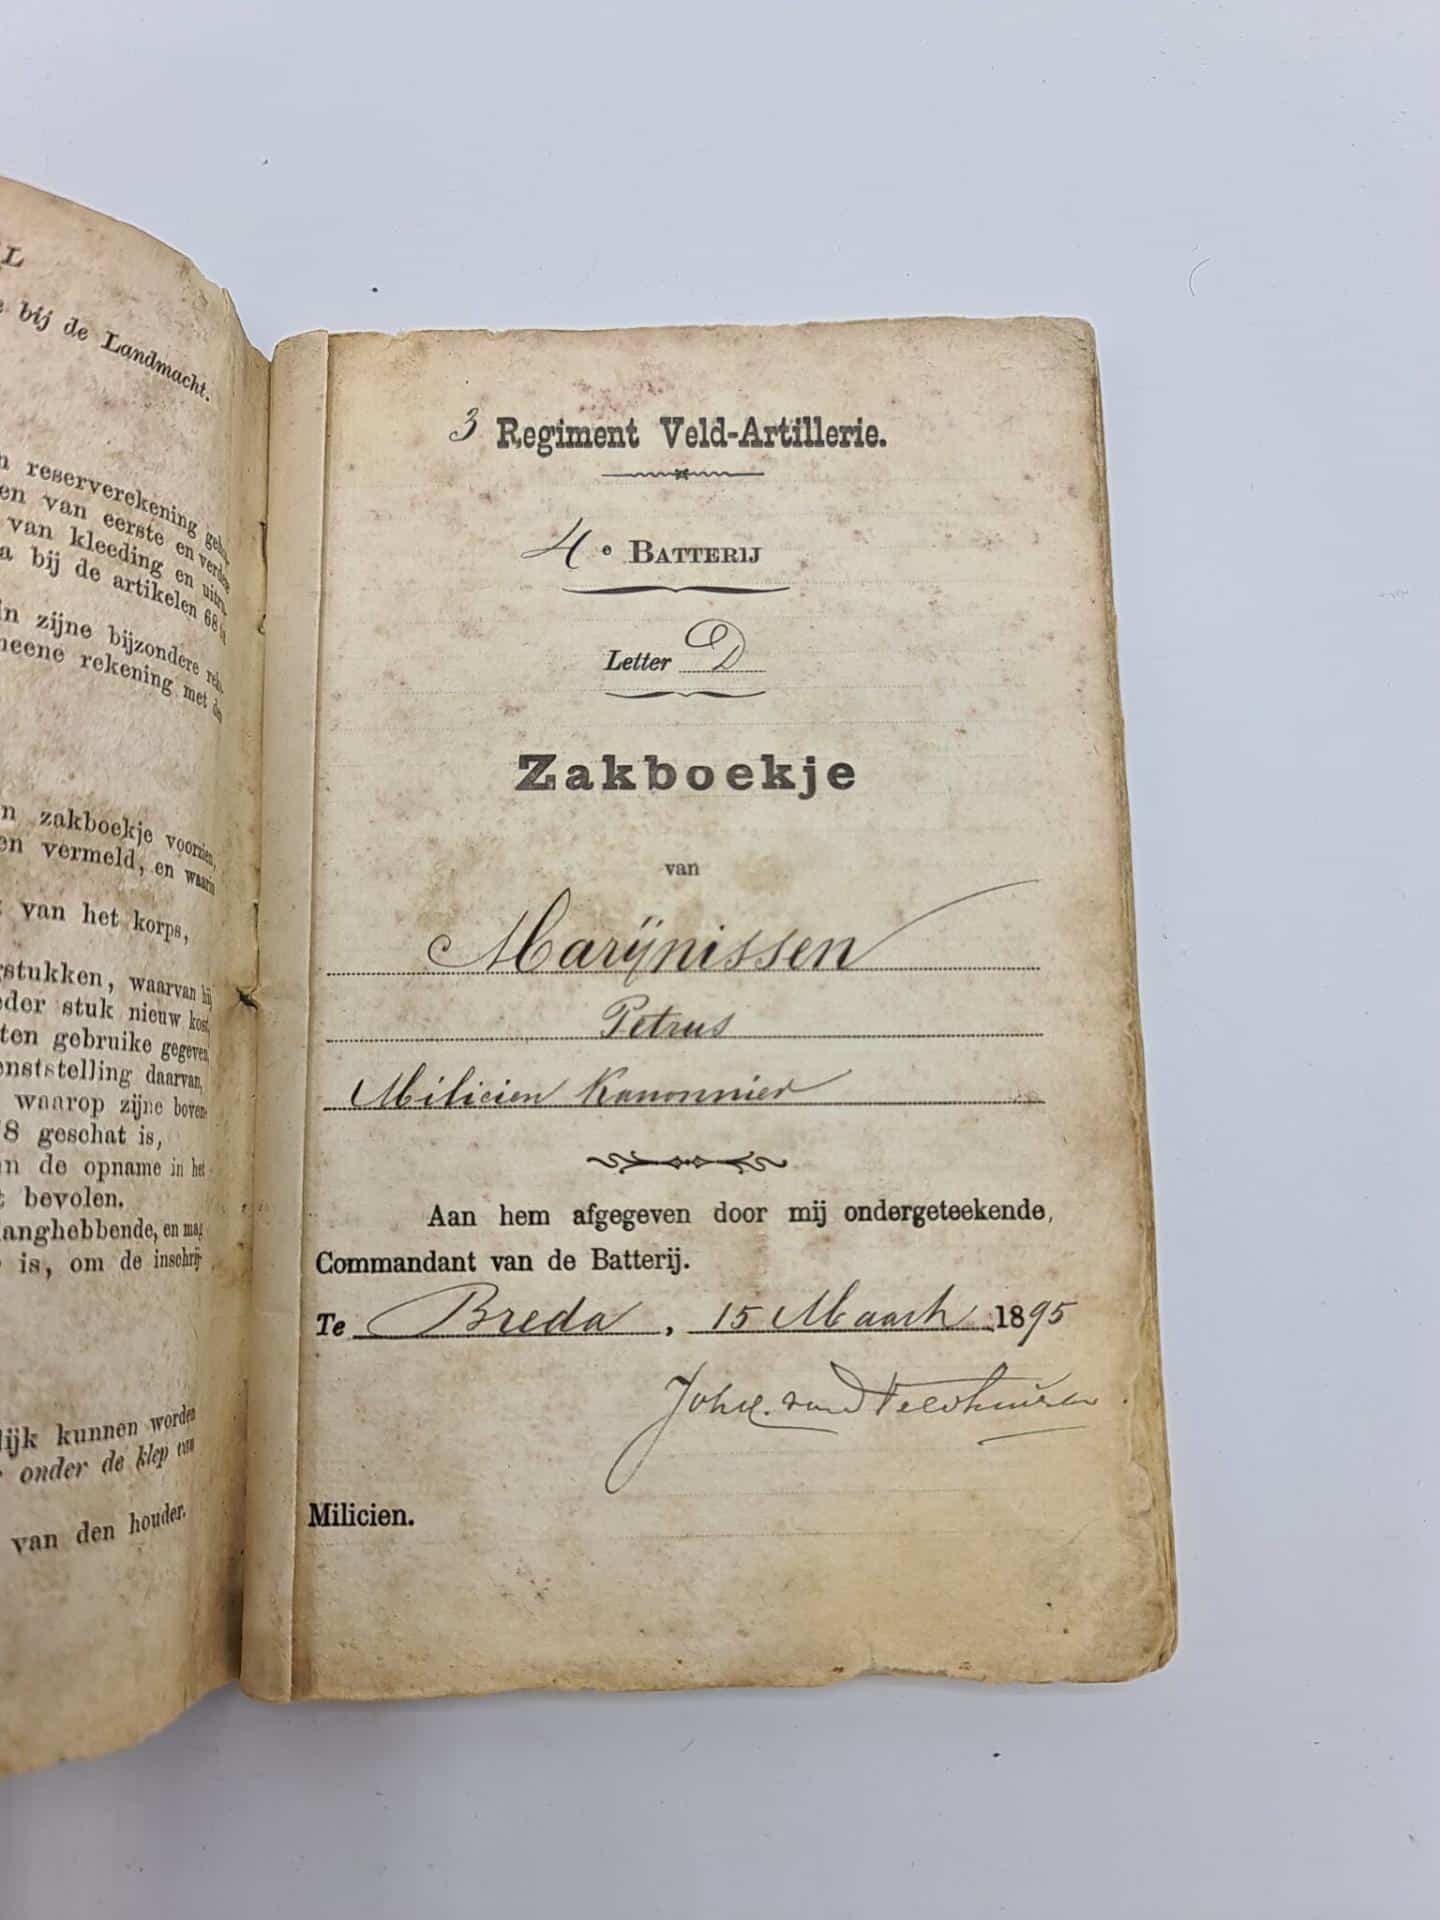 L
bij de Landmacht.
reserverekening
en van eerste en verdere
van kleeding en
a bij de artikelen 68
in zijne bijzondere
meene rekening met de
n zakboekje voorzien,
en vermeld, en waarin
van het korps,
gstukken, waarvan hij
eder stuk nieuw kost,
ten gebruike gegeven,
enststelling daarvan,
waarop zijne boven-
8 geschat is,
in de opname in het
t bevolen.
langhebbende, en mag
is, om de inschrij-
lijk kunnen worden
onder de klep van
van den houder.
3 Regiment Veld-Artillerie.
4e BATTERIJ
Letter D
Zakboekje
van
Marijnissen
Petrus
Milicien Kanonnier
Aan hem afgegeven door mij ondergeteekende,
Commandant van de Batterij.
Te Breda, 15 Maart 1895
Milicien.